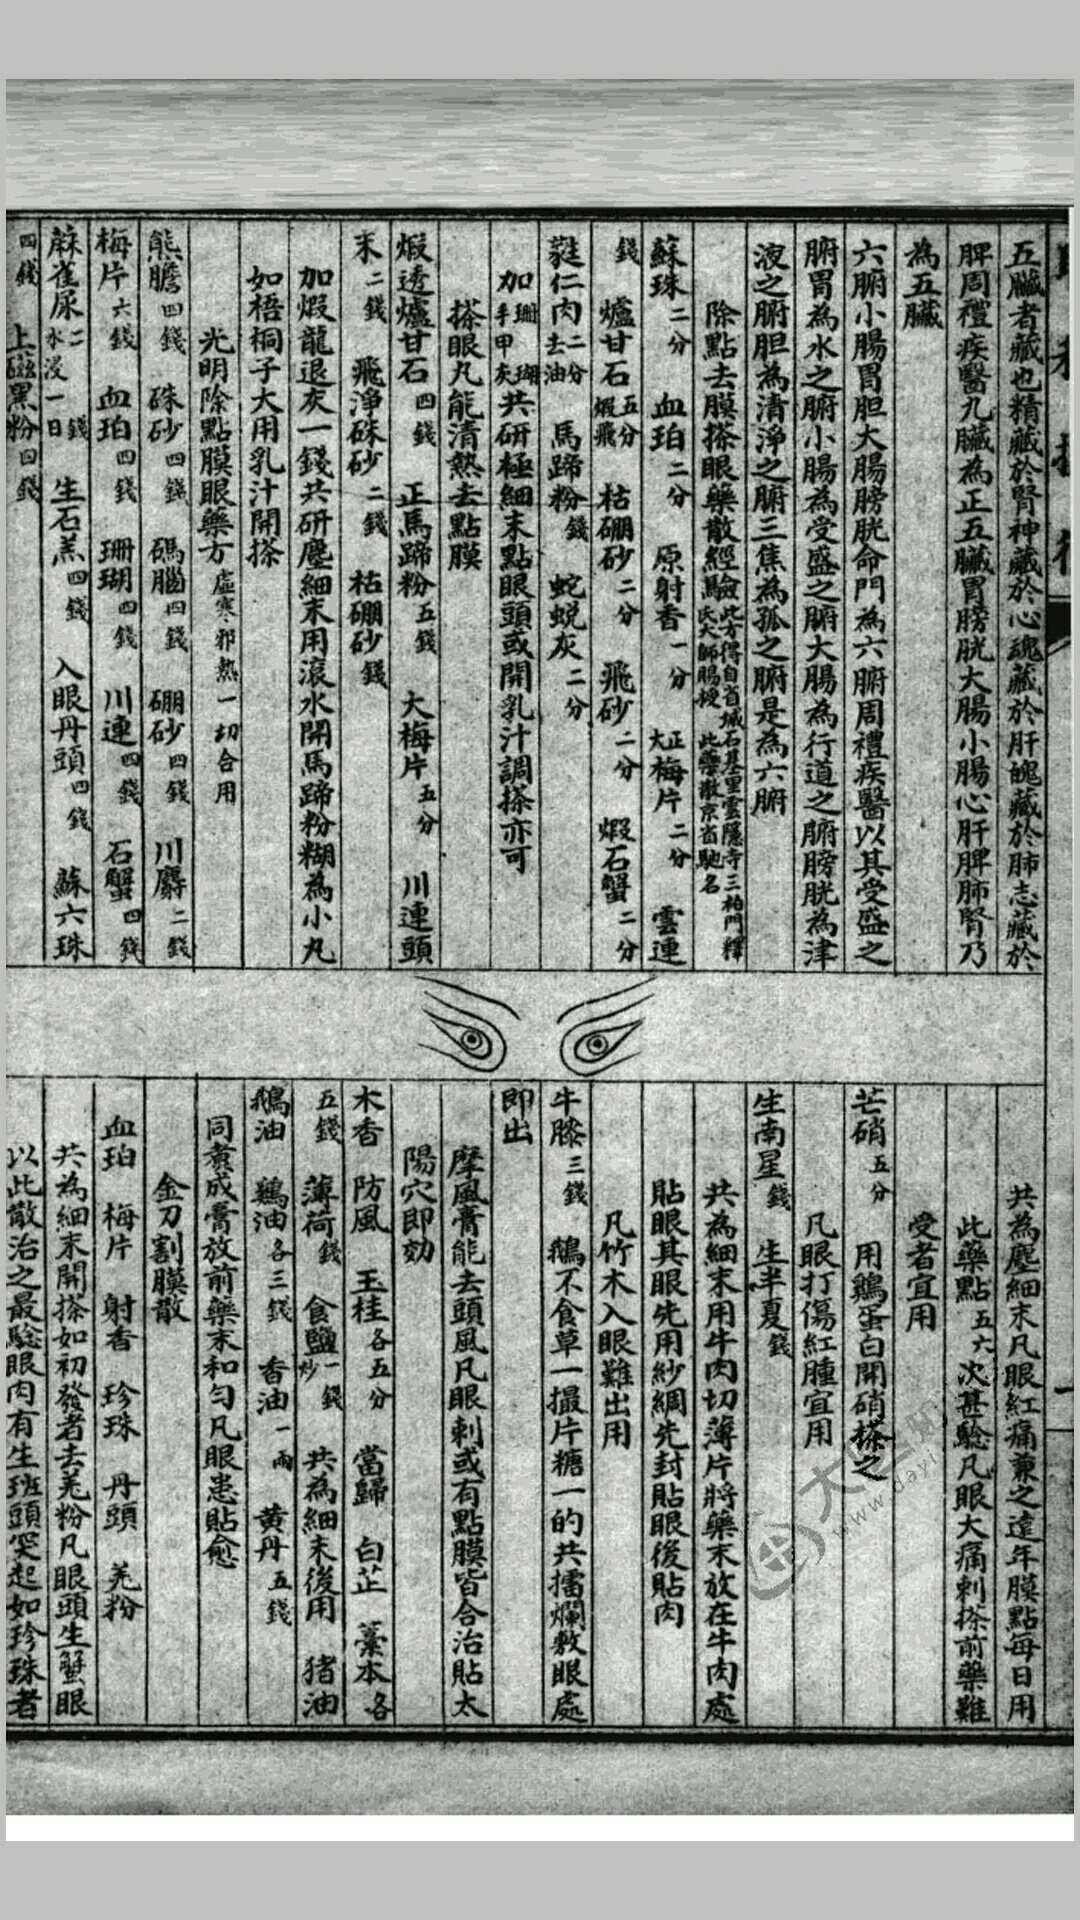 五臟者藏也精藏於腎神藏於心魂藏於肝魄藏於肺志藏於
脾周禮疾醫九臟為正五臟胃膀胱大腸小腸心肝脾肺腎乃
為五臟
六腑小腸胃胆大腸膀胱命門為六腑周禮疾醫以其受盛之
腑胃為水之腑小腸為受盛之腑大腸為行道之腑膀胱為津
液之腑胆為清淨之腑三焦為孤之腑是為六腑
除點去膜搽眼藥散經驗此方得自省城石基里雲隱寺三柏門釋氏大師賜授 此藥散京省馳名
蘇珠二分 血珀二分 原射香一分 正大梅片二分 雲連
錢 爐甘石五分煆飛 枯硼砂二分 飛砂二分 煆石蟹二分
蕤仁肉二分去油 馬蹄粉錢 蛇蛻灰二分
加珊瑚手甲灰共研極細末點眼頭或開乳汁調搽亦可
搽眼丸能清熱去點膜
煆透爐甘石四錢 正馬蹄粉五錢 大梅片五分 川連頭
末二錢 飛淨硃砂二錢 枯硼砂錢
加煆龍退灰一錢共研塵細末用滾水開馬蹄粉糊為小丸
如梧桐子大用乳汁開搽
光明除點膜眼藥方虛寒邪熱一切合用
熊膽四錢 硃砂四錢 碼腦四錢 硼砂四錢 川麝二錢
梅片六錢 血珀四錢 珊瑚四錢 川連四錢 石蟹四錢
蔴雀屎二錢水浸一日 生石羔四錢 入眼丹頭四錢 蘇六珠
四錢 上磁黑粉四錢
共為塵細末凡眼紅痛兼之遠年膜點每日用
此藥點五六次甚驗凡眼大痛刺搽前藥難
受者宜用
芒硝五分 用鷄蛋白開硝搽之
凡眼打傷紅腫宜用
生南星錢 生半夏錢
共為細末用牛肉切薄片將藥末放在牛肉處
貼眼其眼先用紗綢先封貼眼後貼肉
凡竹木入眼難出用
牛膝三錢 鵝不食草一撮片糖一的共擂爛敷眼處
即出
摩風膏能去頭風凡眼刺或有點膜皆合治貼太
陽穴即効
木香 防風 玉桂各五分 當歸 白芷 藁本各
五錢 薄荷錢 食鹽一錢炒 共為細末後用 猪油
鵝油 鷄油各三錢 香油一兩 黄丹五錢
同煮成膏放前藥末和勻凡眼患貼愈
金刀割膜散
血珀 梅片 射香 珍珠 丹頭 羌粉
共為細末開搽如初發者去羌粉凡眼頭生蟹眼
以此散治之最驗眼肉有生班頭突起如珍珠者